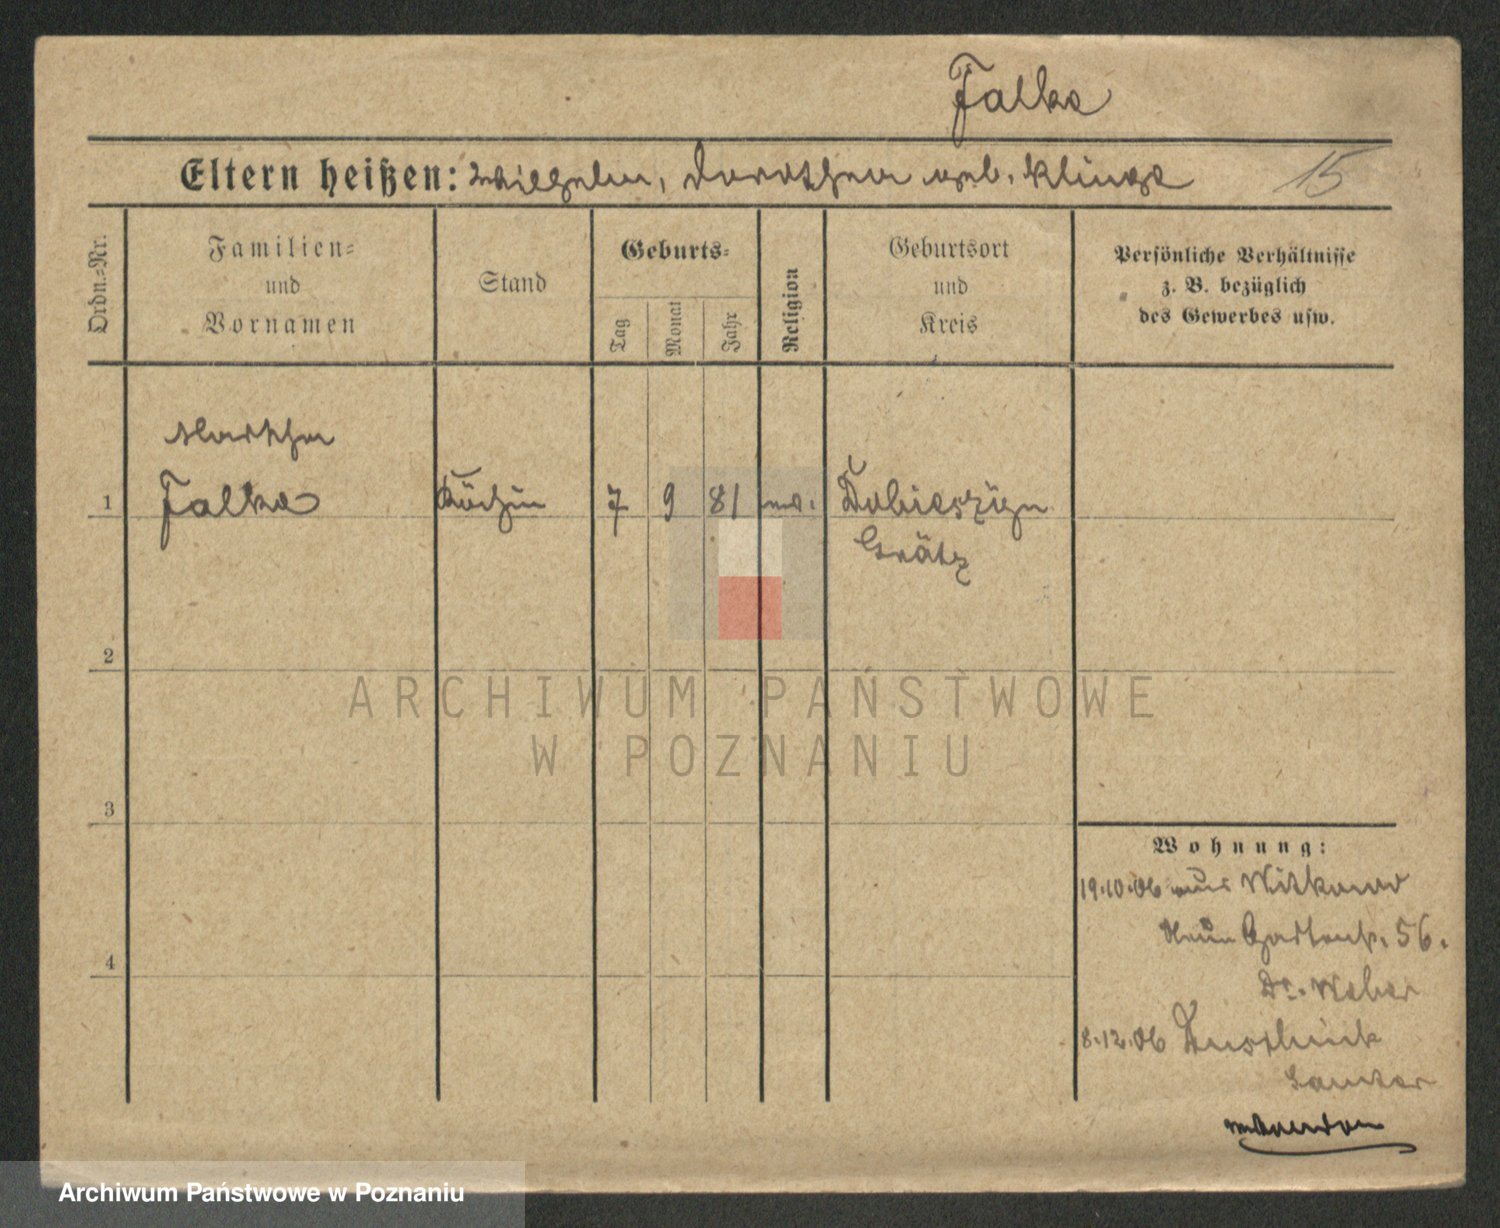 Falke
Eltern heißen: Wilhelm, Dorothea geb. Klinge 15
Ordn.-Nr.
Familien-
und
Vornamen
Stand
Geburts-
Tag
Monat
Jahr
Religion
Geburtsort
und
Kreis
Persönliche Verhältnisse
z. B. bezüglich
des Gewerbes usw.
Martha
1 Falke Köchin 7 9 81
Grätz
2
3
4
Wohnung:
19.10.06 aus Witkowo
Neue Gartenstr. 56.
Dr. Weber
8.12.06
ARCHIWUM PAŃSTWOWE
W POZNANIU
Archiwum Państwowe w Poznaniu